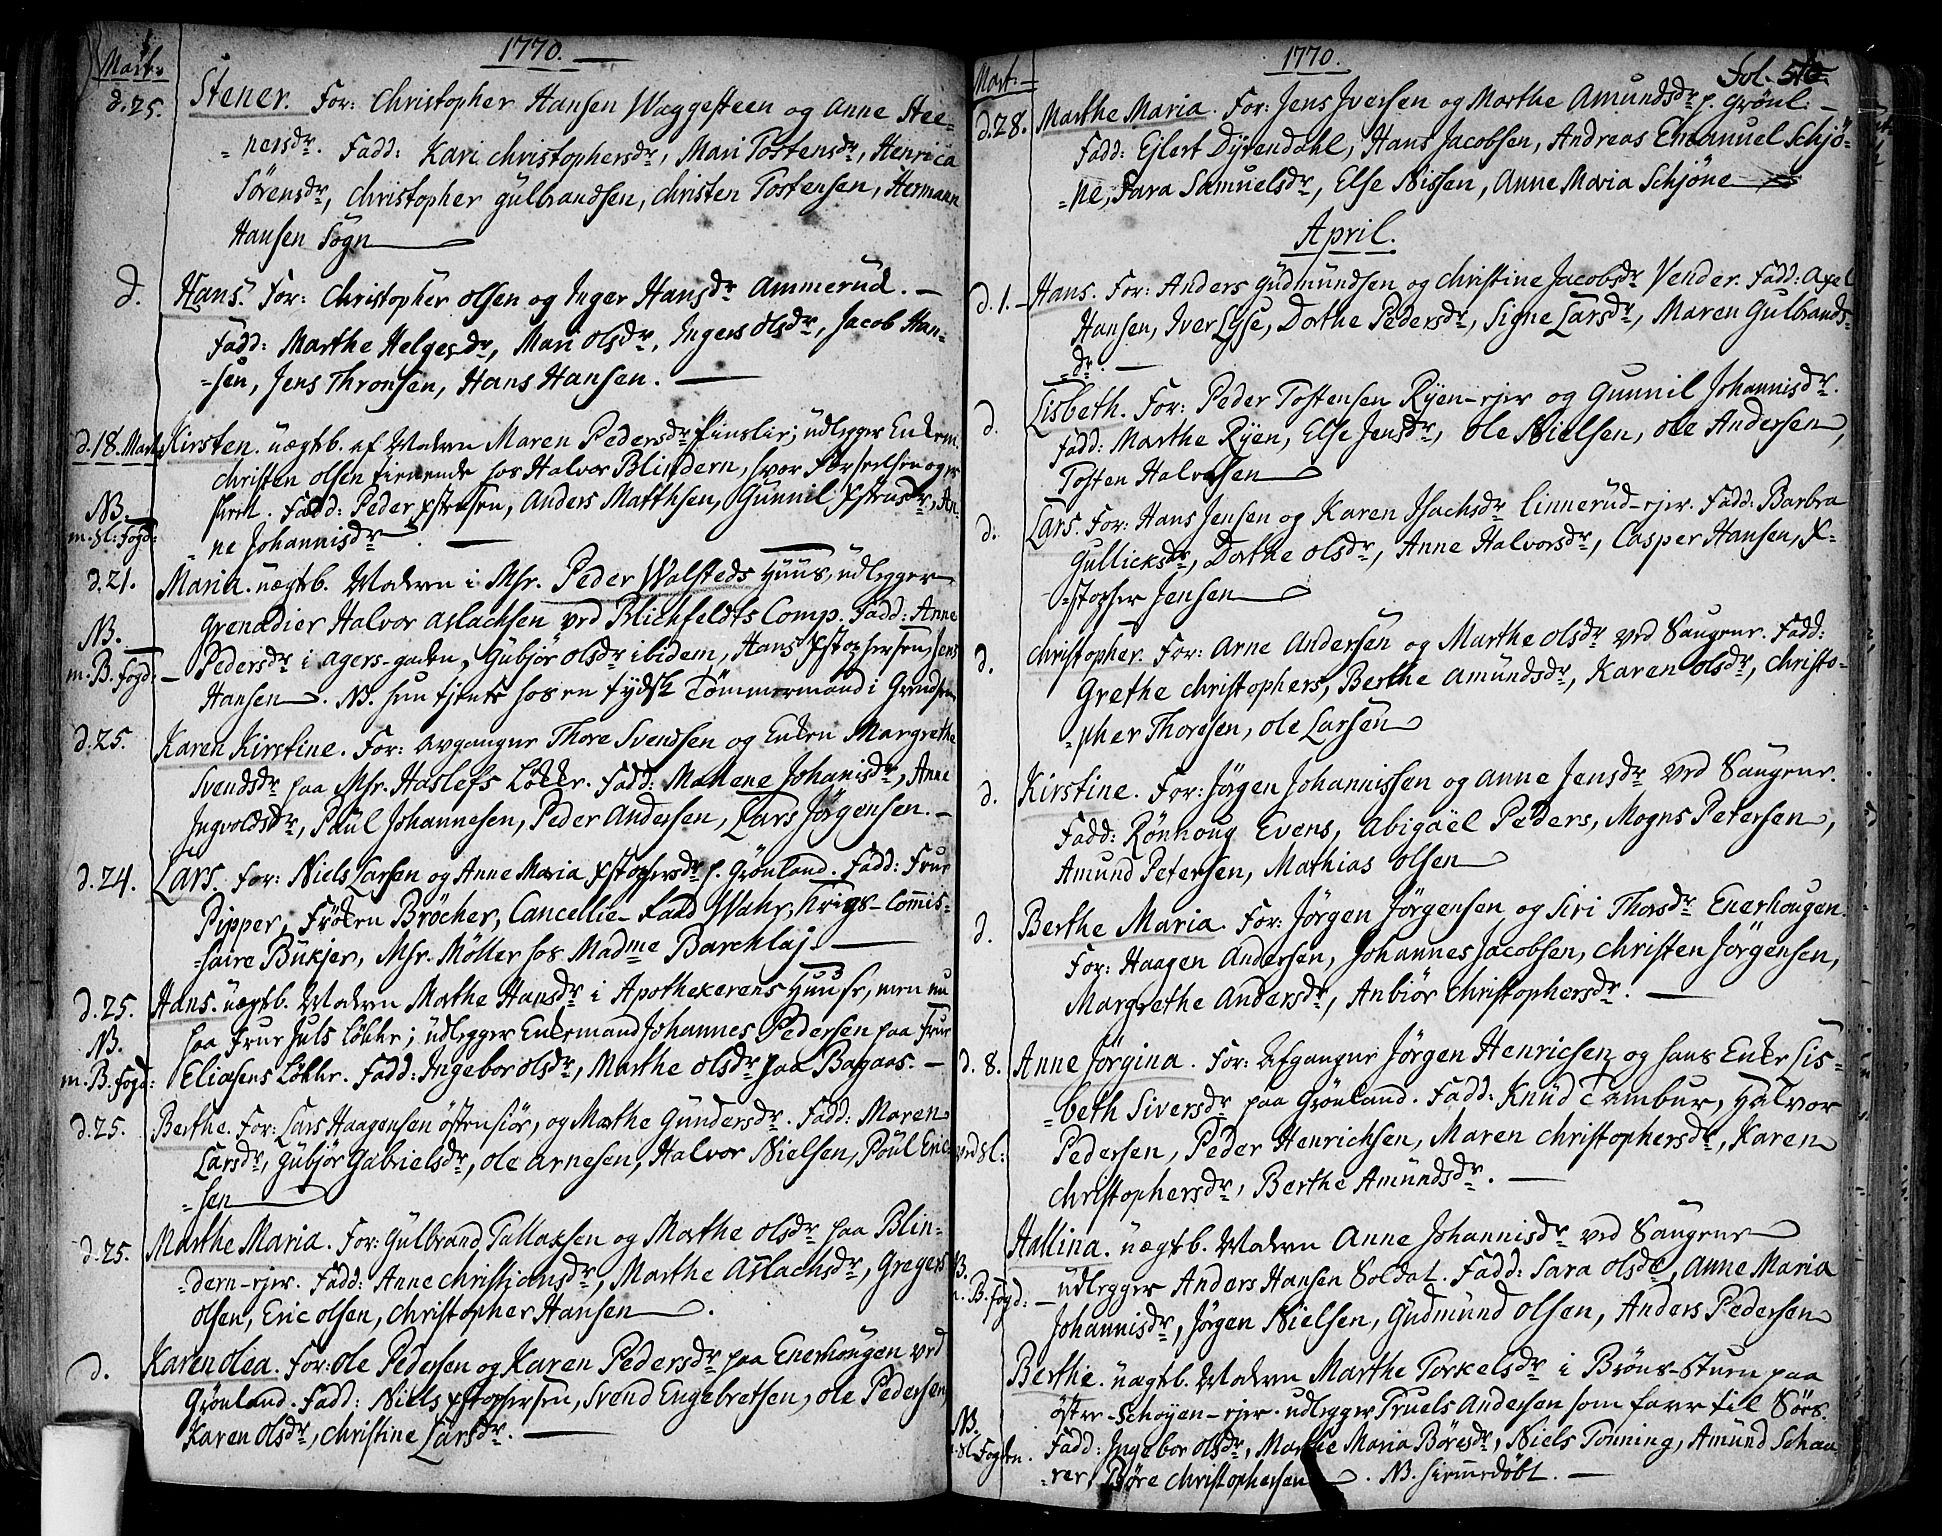 1770.
Mart:
d. 25. Stener. For: Christopher Hansen Waggesteen og Anne Stee-
=nersdr. Fadd: Kari Christophersdr, Mari Tostensdr, Henrica
Sörensdr, Christopher Gülbrandsen, Christen Tostensen, Hermann
Hansen Sogn
d. Hans. For: Christopher Olsen og Inger Hansdr Ammerud. —
Fadd: Marthe Helgesdr, Mari Olsdr, Ingers Olsdr, Jacob Han-
=sen, Jens Thronsen, Hans Hansen. —
d. 18. Mart. Kirsten. üægtb. af Modern Maren Pedersdr Pinslie; üdlegger Enkem.
Christen Olsen tienende hos Halvor Blindern, hvor
NB. skeet. Fadd: Peder Xstensen, Anders Matthsen, Gunnil, An-
m. Sl: Fogd: =ne Johannisdr —
d. 21. Maria. üægtb. Modern i Msr. Peder Walsteds Hüüs, üdlegger
Grenadier Halvor Aslachsen ved Blichfeldts Comp. Fadd: Anne
NB. Pedersdr i Agers-gaden, Gübjör Olsdr ibidem, Hans Xstophersen, Jens
m. B. Fogd: Hansen. NB. hun tiente hos en tydsk Tömmermand i Grændsen
d. 25. Karen Kirstine. For: Afgangne Thore Svendsen og Enken Margrethe
Svendsdr paa Msr. Haslefs Lökke. Fadd: Mariene Johanisdr, Anne
Ingvoldsdr, Paül Johannesen, Peder Andersen, Lars Jörgensen. —
d. 24. Lars. For: Niels Larsen og Anne Maria Xstophersdr p. Grönland. Fadd: Frue
Pipper, Fröken Bröcher, Cancellie-Raad Wahr, Krigs-Com̄is-
=saire Bükjer, Msr. Möller hos Madme Barchlaj. —
d. 25. Hans. üægtb. Modern Marthe Hansdr i Apothekerens Hüüse, men nu
NB. paa Frue Juls Lökke; üdlegger Enkemand Johannes Pedersen paa Frue
m. B. Fogd: Eliesens Lökke. Fadd: Ingebor Olsdr, Marthe Olsdr paa Bagaas. —
d. 25. Berthe. For: Lars Haagensen Östensiör, og Marthe Gündersdr. Fadd: Maren
Larsdr, Gübjör Gabrielsdr, Ole Arnesen, Halvor Nielsen, Poül Eric-
=sen
d. 25. Marthe Maria. For: Gülbrand Tallaksen og Marthe Olsdr paa Blin-
=dern-ejer. Fadd: Anne Christjansdr, Marthe Aslachsdr, Gregers
Olsen, Eric Olsen, Christopher Hansen.
d. Karen Olea. For: Ole Pedersen og Karen Pedersdr paa Enerhougen ved
Grönland. Fadd: Niels Xstophersen, Svend Engebretsen, Ole Pedersen,
Karen Olsdr, Christine Larsdr. —
1770.
Fol. 510
Mart:
d. 28. Marthe Maria. For: Jens Iversen og Marthe Amündsdr p. Grönl. —
Fadd: Ejlert Dyrendahl, Hans Jacobsen, Andreas Emanuel Schjö-
=ne, Sara Samuelsdr, Else Nissen, Anne Maria Schjöne
April.
d. 1. Hans. For: Anders Güdmündsen og Christine Jacobsdr Vender. Fadd: Axel
Hansen, Iver Lyse, Dorthe Pedersdr, Signe Larsdr, Maren Gülbrands-
=dr. —
d. Lisbeth. For: Peder Tostensen Ryen-ejer og Gunnil Johannisdr.
Fadd: Marthe Ryen, Else Jensdr, Ole Nielsen, Ole Andersen,
Tosten Halvorsen
d. Lars. For: Hans Jensen og Karen Isachsdr Linnerüd-ejer. Fadd: Barbra
Gullicksdr, Dorthe Olsdr, Anne Halvorsdr, Casper Hansen, X-
=stopher Jensen
d. Christopher. For: Arne Andersen og Marthe Olsdr ved Saugene. Fadd:
Grethe Christophers, Berthe Amündsdr, Karen Olsdr, Christo-
=pher Thoresen, Ole Larsen
d. Kirstine. For: Jörgen Johannissen og Anne Jensdr ved Saugene.
Fadd: Rönnoug Evens, Abigaël Peders, Mogns Petersen,
Amund Petersen, Mathias Olsen
d. Berthe Maria. For: Jörgen Jörgensen og Siri Thorsdr Enerhougen.
For: Haagen Andersen, Johannes Jacobsen, Christen Jörgensen,
Margrethe Andersdr, Anbiör Christophersdr. —
d. 8. Anne Jörgina. For: Afgangne Jörgen Henrichsen og hans Enke Lis-
=beth Siversdr paa Grönland. Fadd: Knüd Tambur, Halvor
ved Sl: Pedersen, Peder Henrichsen, Maren Christophersdr, Karen
Christophersdr, Berthe Amündsdr. —
Hallina. üægtb. Modern Anne Johannisdr ved Saugene
B. Fogd: üdlegger Anders Hansen Soldat. Fadd: Sara Olsdr, Anne Maria
Johannisdr, Jörgen Nielsen, Güdmünd Olsen, Anders Pedersen
Berthe. üægtb. Modern Marthe Torkelsdr i Bröns-Stuen paa
Öster-Schoyen-ejer. üdlegger Truels Andersen som farer til Söes.
NB. Fadd: Ingebor Olsdr, Marthe Maria Böresdr, Niels Tonning, Amünd Schaa-
Sl. Fogden. =rer, Böre Christophersen. NB. hiemmedöbt. —